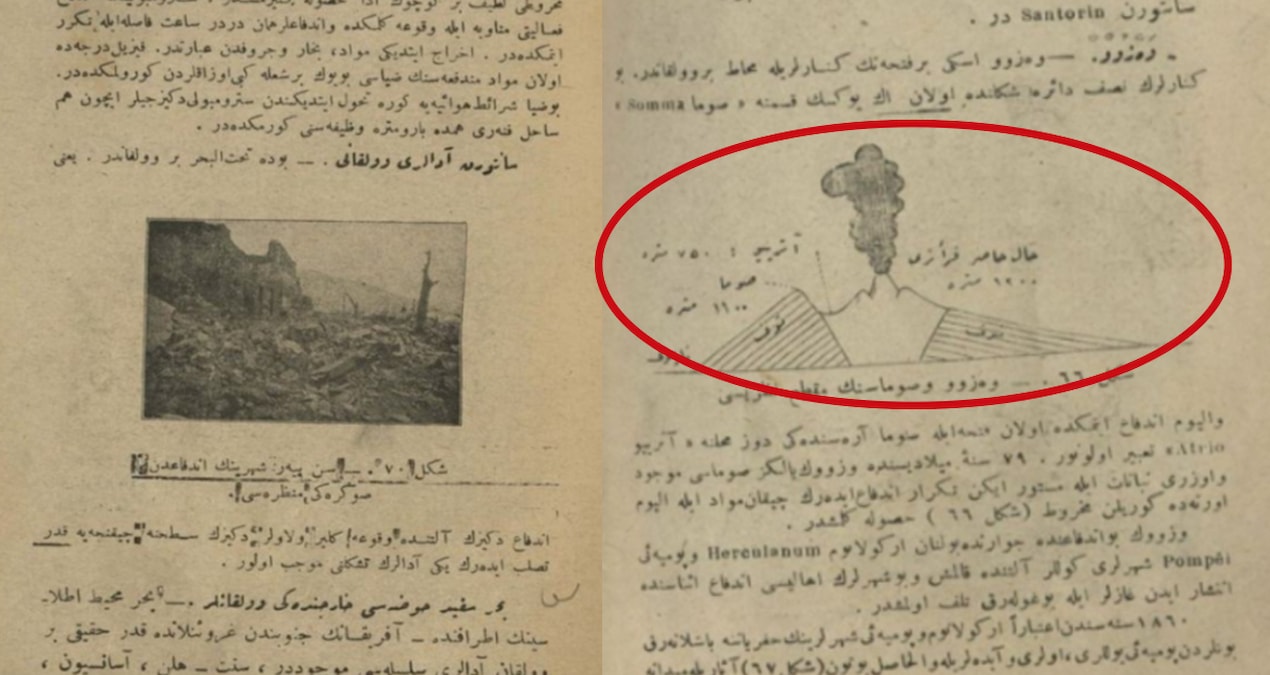 فعالیتی متناوبه ایله وقوعه کلمکده واندفاعلرهمان دردر ساعت فاصله‌ایله تکرر
ایتمکده‌در . اخراج ایتدیکی مواد، بخار وجروفدن عبارتدر. قیزیل‌درجه‌ده
اولان مواد مندفعه‌سنك ضیاسی بویوك برشعله کبی‌اوزاقلردن کورولمکده‌در.
بوضیا شرائط‌هوائیه‌یه کوره تحول ایتدیکندن سترومبولی‌دکیزجیلر ایچون هم
ساحل فنه‌ری همده بارومتره وظیفه‌سنی کورمکده‌در .
سانتورن آدالری وولقانی . — بوده تحت‌البحر بر وولقاندر . یعنی
شکل ٧٠ . — سن پیه‌ر شهرینك اندفاعدن
صوکره‌کی منظره‌سی .
اندفاع دکیزك آلتنده وقوعه کلیر ولاولر دکیزك سطحنه چیقنجه‌یه قدر
تصلب ایده‌رك یکی آدالرك تشکلنی موجب اولور .
بحر سفید حوضه‌سی خارجنده‌کی وولقانلر . — بحر محیط اطلا-
سینك اطرافنده — آفریقانك جنوبندن غروئنلانده قدر حقیقی بر
وولقان آدالری سلسله‌سی موجوددر ، سنت — هلن ، آسانسیون ،
سانتورن Santorin در .
وه‌زوو. — وه‌زوو اسکی برفتحه‌نك کنارلریله محاط بروولقاندر. بو
کنارلرك نصف دائره شکلنده اولان اك یوکسك قسمنه « صوما Somma »
حال حاضر فرأزی
١٢٠٠ متره
آتریو : ٧٥٠ متره
صوما
١١٠٠ متره
توف
توف
شکل ٦٦ . — وه‌زوو وصوماسنك مقطع نظریسی
والیوم اندفاع ایتمکده اولان فتحه‌ایله صوما آره‌سنده‌کی دوز محلنه « آتریو
Atrio » تعبیر اولونور . ٧٩ سنهٔ میلادیسنده وزووك‌یالکز صوماسی موجود
واوزری نباتات ایله مستور ایکن تکرار اندفاع‌ایده‌رك چیقان‌مواد ایله الیوم
اورته‌ده کوریلن مخروط (شکل ٦٦ ) حصوله کلشدر .
وزووك بواندفاعنده جوارنده‌بولنان ارکولانوم Herculanum وپومپه‌ئی
Pompéi شهرلری کوللر آلتنده قالمش وبوشهرلرك اهالیسی اندفاع اثناسنده
انتشار ایدن غازلر ایله بوغوله‌رق تلف اولمشدر .
١٨٦٠سنه‌سندن‌اعتباراً ارکولانوم‌وپومپه‌ئی شهرلرینك‌حفریاتنه باشلانه‌رق
بونلردن‌پومپه‌ئی‌یوللری ،اولری‌وآبده‌لریله‌والحاصل‌بوتون(شکل٦٧)آثاریله‌میدانه